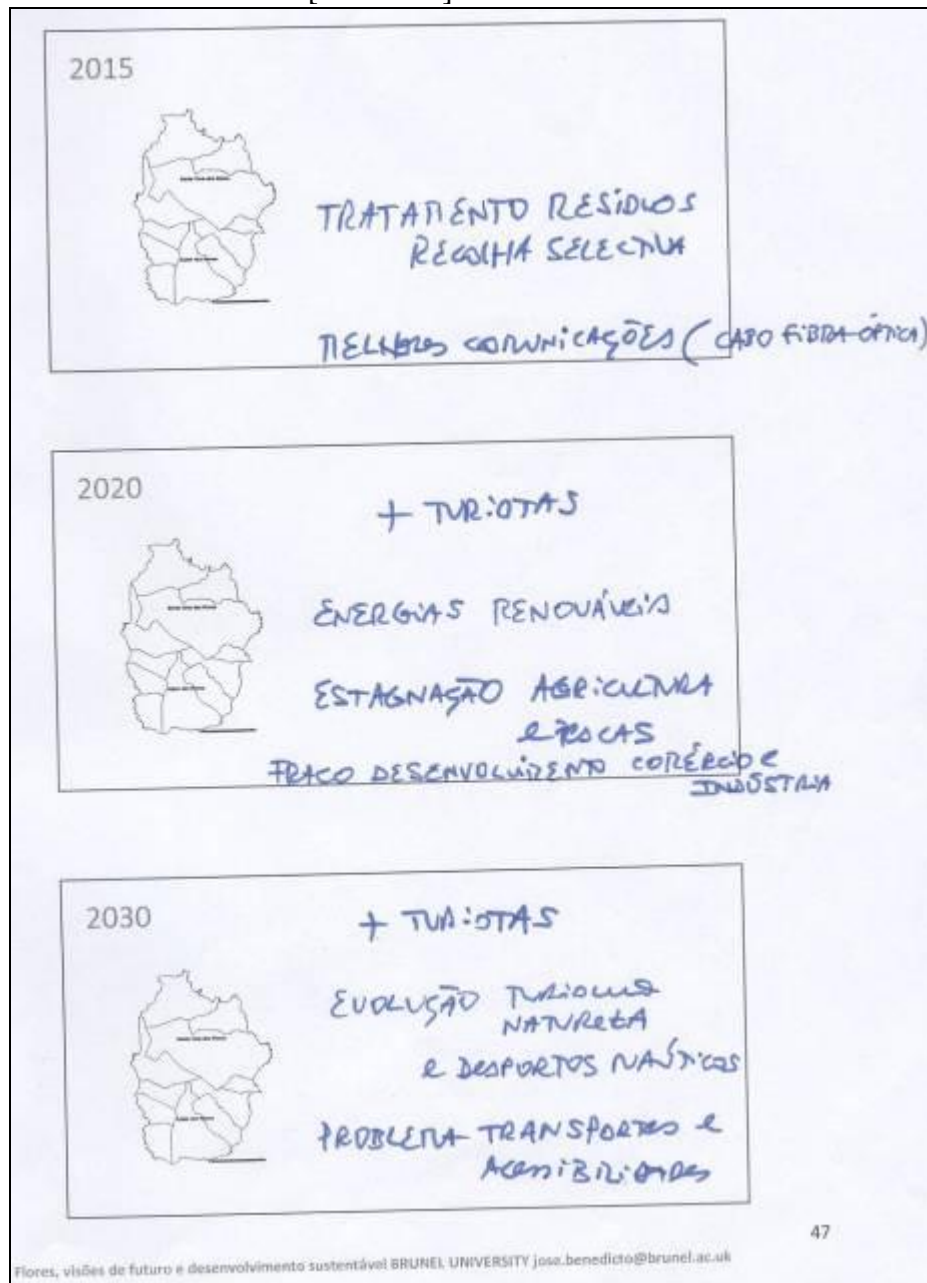 2015
TRATAMENTO RESÍDUOS
RECOLHA SELECTIVA
MELHORES COMUNICAÇÕES (CABO FIBRA-ÓPTICA)
2020
+ TURISTAS
ENERGIAS RENOVÁVEIS
ESTAGNAÇÃO AGRICULTURA
e PESCAS
FRACO DESENVOLVIMENTO COMÉRCIO e
INDÚSTRIA
2030
+ TURISTAS
EVOLUÇÃO TURISMO
NATUREZA
e DESPORTOS NAÚTICOS
PROBLEMA TRANSPORTES e
ACESSIBILIDADES
47
Flores, visões de futuro e desenvolvimento sustentável BRUNEL UNIVERSITY jose.benedicto@brunel.ac.uk